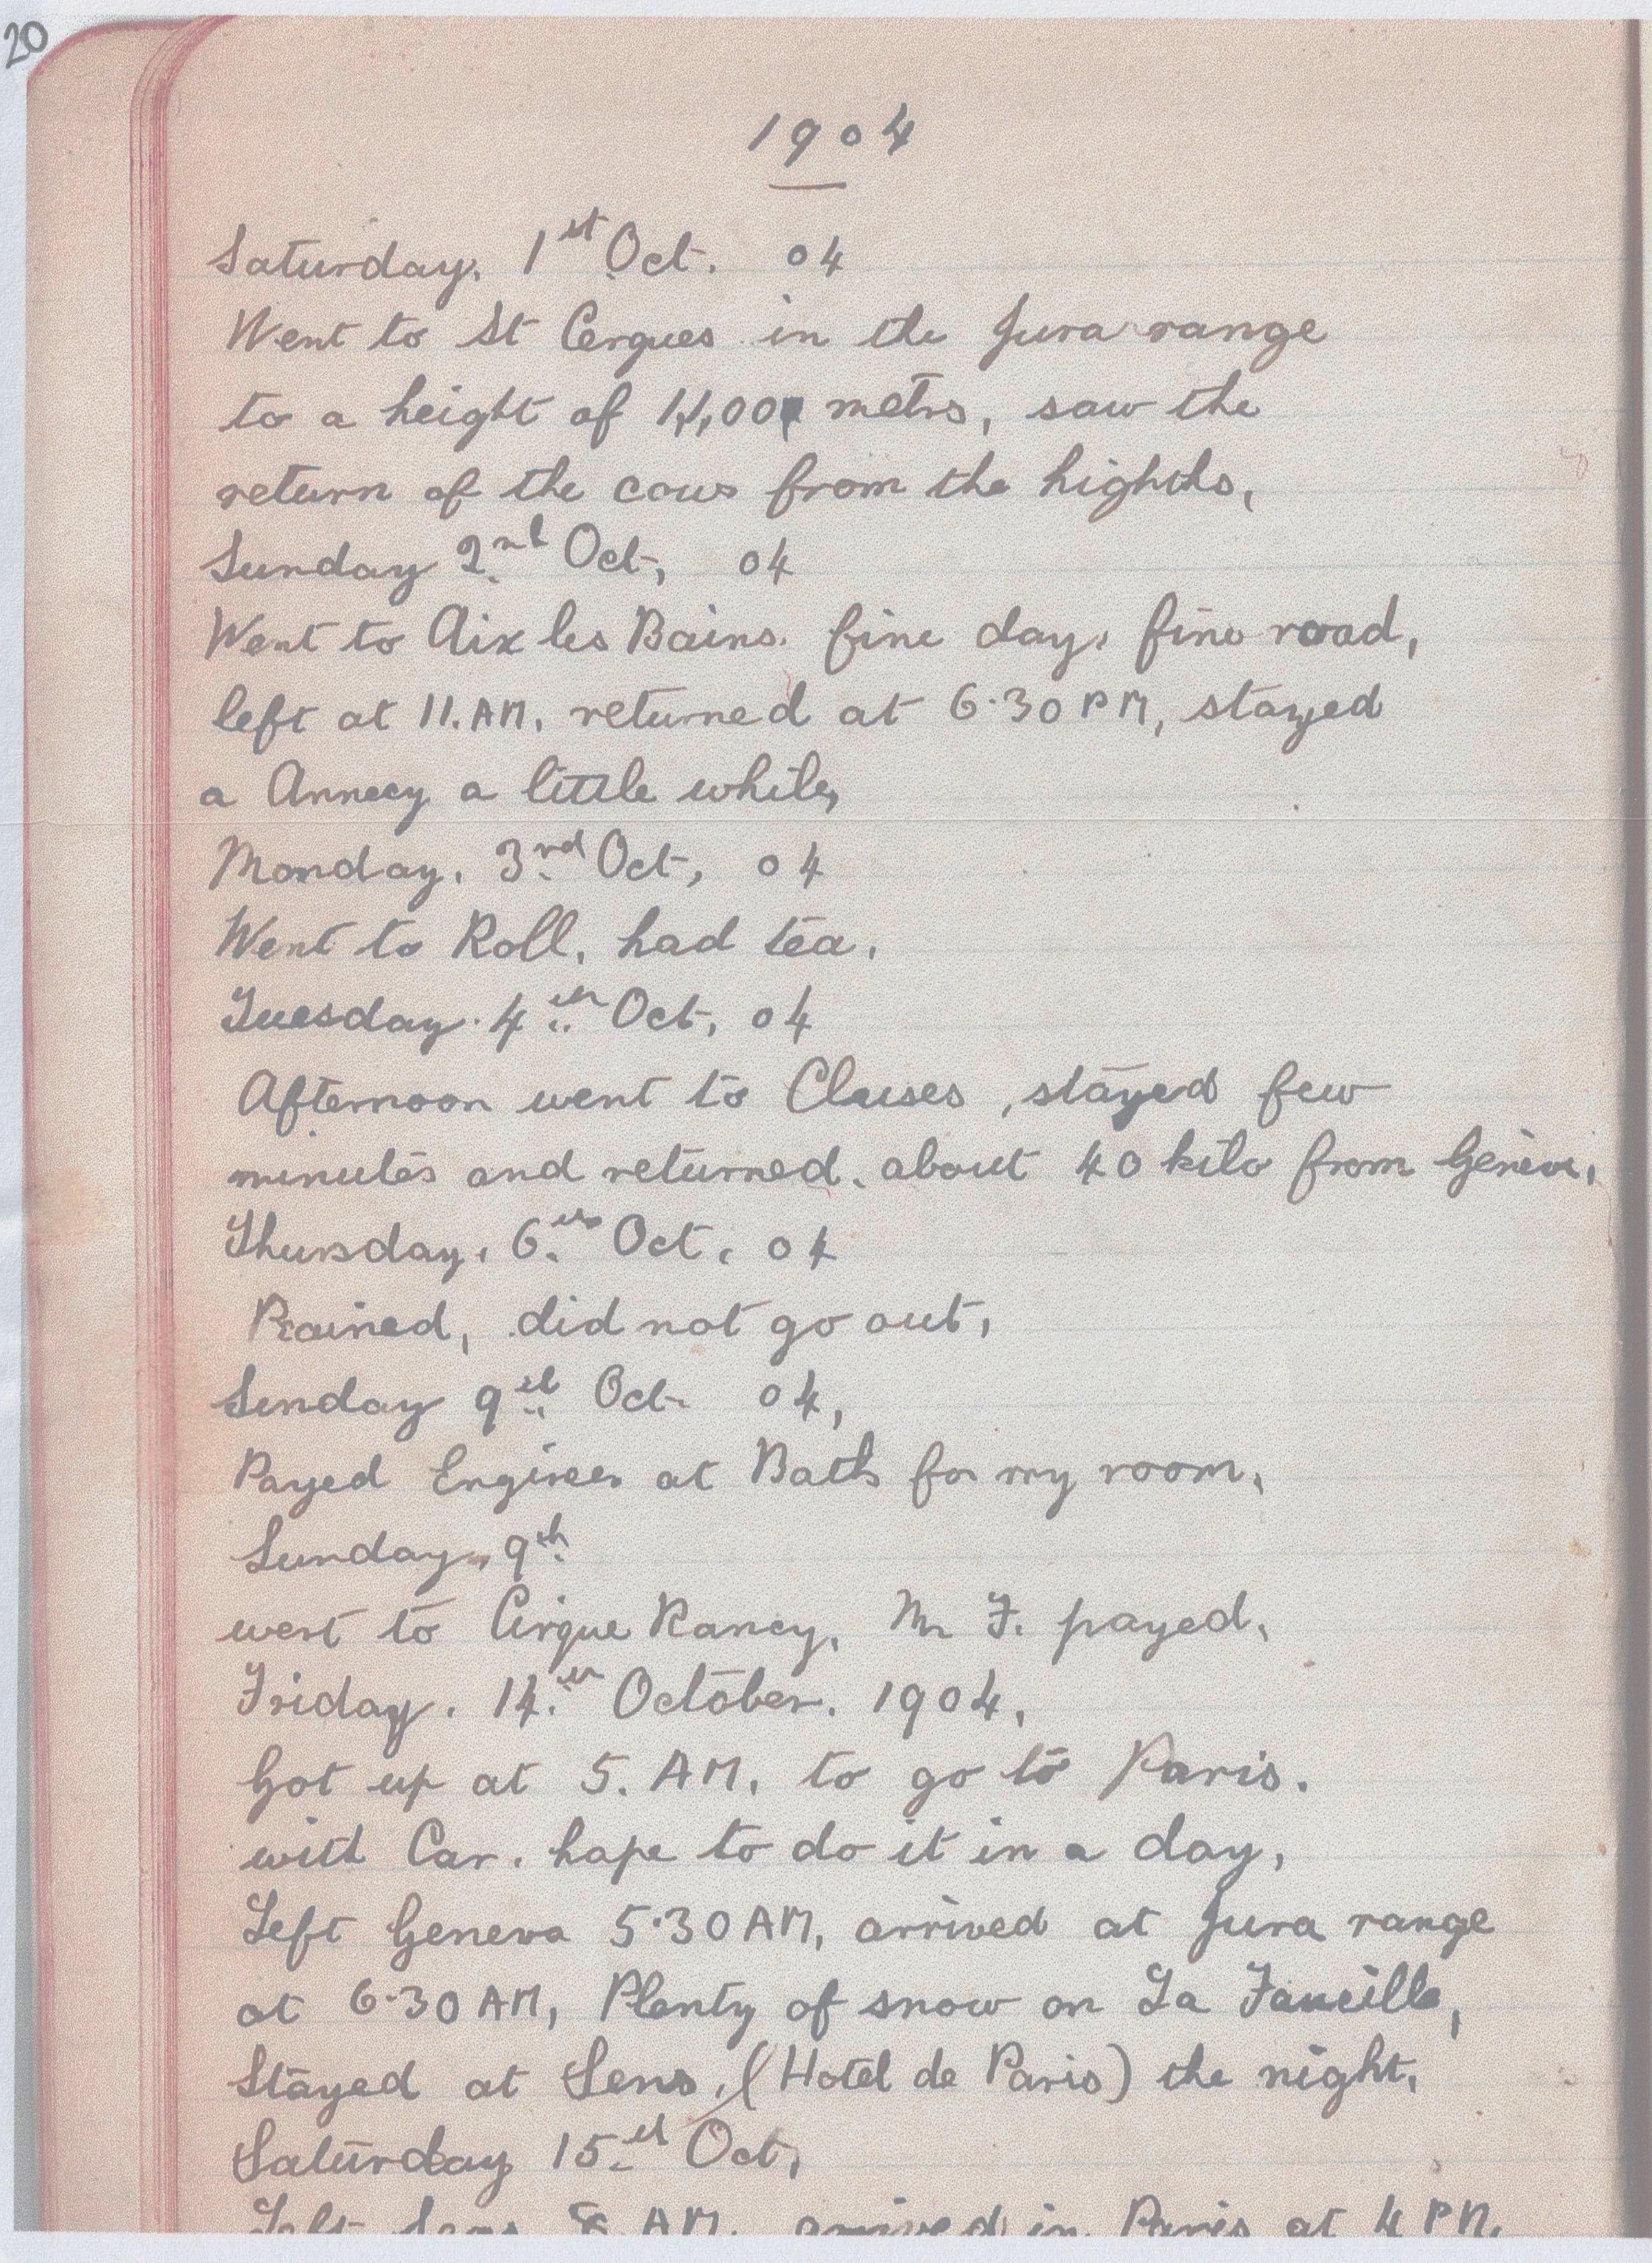 20
1904
Saturday, 1st Oct. 04
Went to St Cergues in the Jura range
to a height of metrs, saw the
return of the cows from the highths,
Sunday 2nd Oct, 04
Went to Aix les Bains. fine day, fine road,
left at 11. AM, returned at 6.30 PM, stayed
a Annecy a little while,
Monday, 3rd Oct, 04
Went to Roll, had tea,
Tuesday. 4th Oct, 04
Afternoon went to Cluses, stayed few
minutes and returned, about 40 kilo from Genève,
Thursday, 6th Oct, 04
Rained, did not go out,
Sunday 9th Oct. 04,
Payed Engineer at Bath for my room,
Sunday, 9th
went to Cirque Rancy, Mr F. payed,
Friday. 14th October. 1904,
Got up at 5. AM, to go to Paris.
with Car. hope to do it in a day,
Left Geneva 5.30 AM, arrived at Jura range
at 6.30 AM, Plenty of snow on La Faucille,
Stayed at Sens, (Hotel de Paris) the night,
Saturday 15th Oct,
Left Sens 8 AM. arrived in Paris at 4 PM,